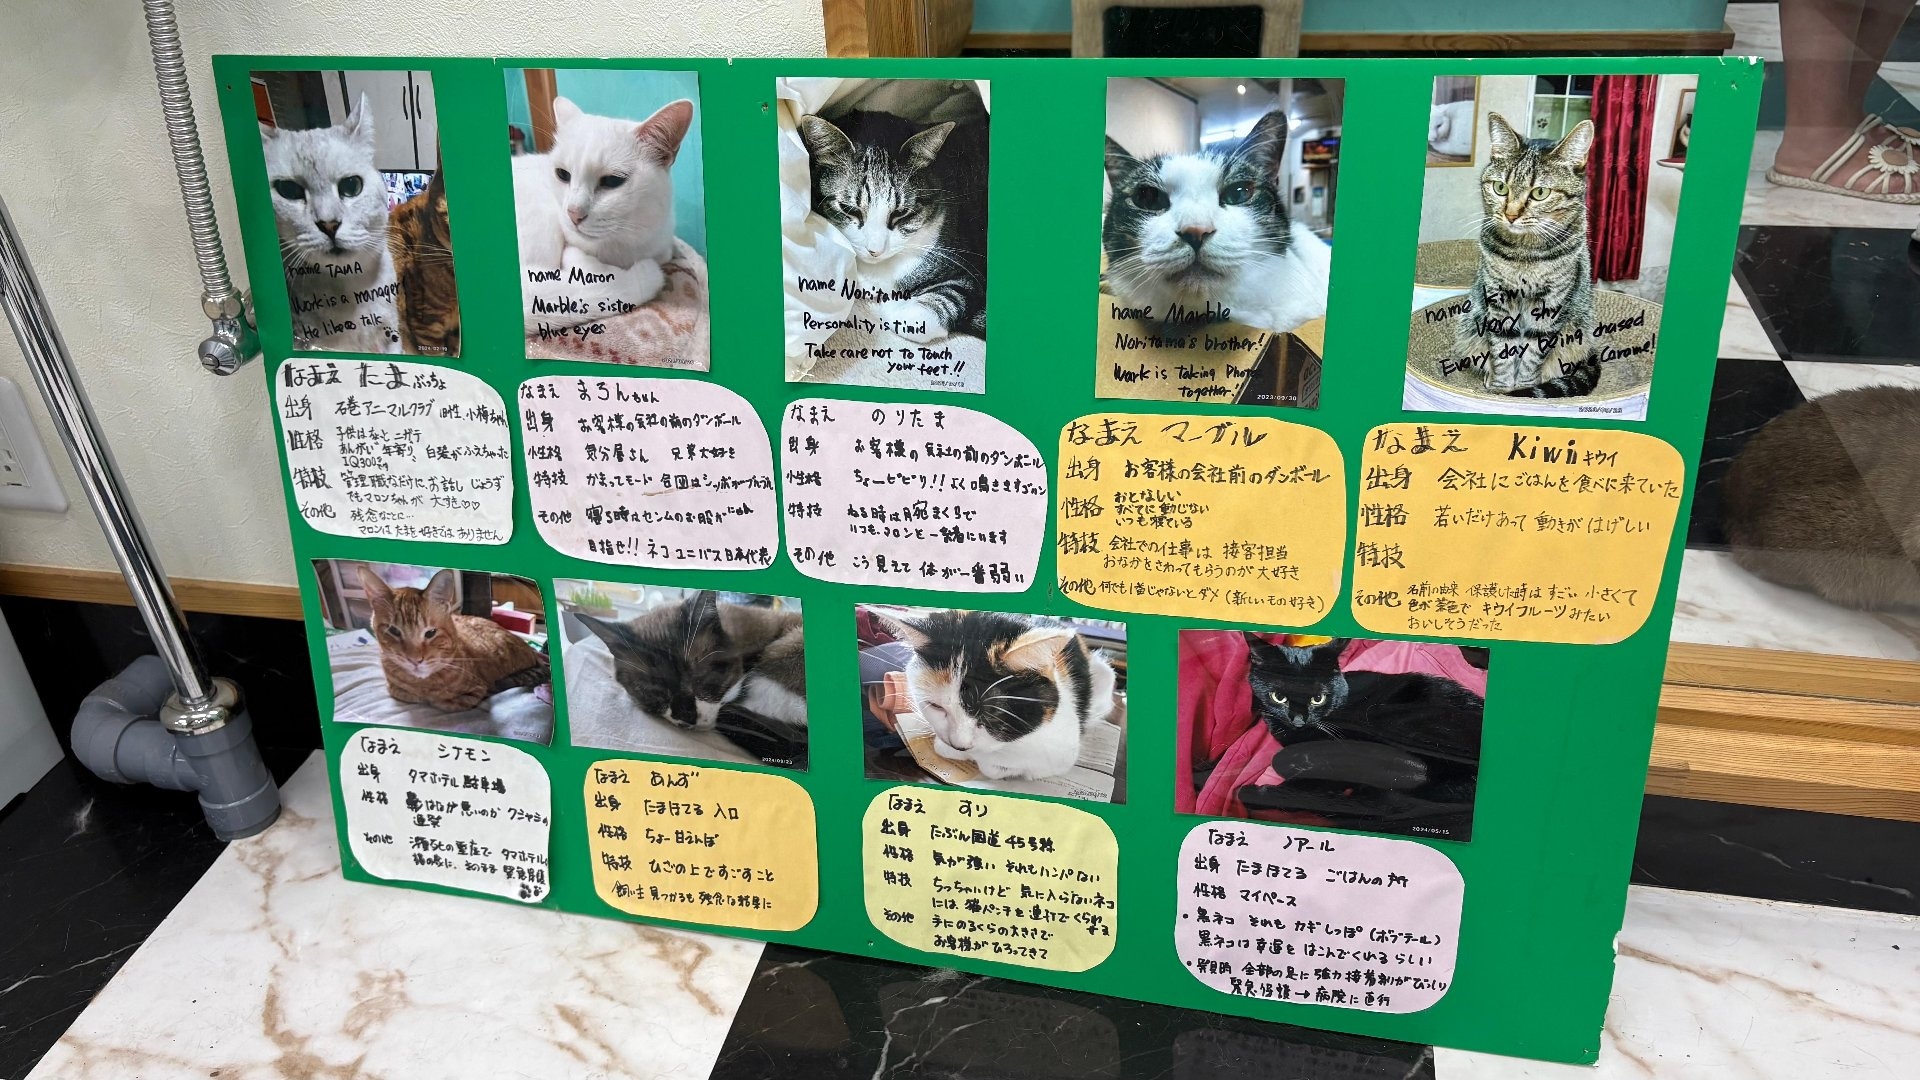 name TAMA
Work is a manager!
He like talk
2024/02/10
name Maron
Marble's sister
blue eyes
name Noritama
Personality is timid
Take care not to Touch
your feet!!
name Marble
Noritama's brother!
Work is Taking Photo
Together!
2023/09/30
name kiwi
very shy
Every day being chased
by Carame!
なまえ たまぶっちょ
出身 石巻アニマルクラブ 旧姓、小梅ちゃん
性格 子供はちょっとニガテ
あんがい年寄り 白髪がふえちゃった
IQ300
特技 管理職なだけに、お話し じょうず
でもマロンちゃんが 大すき♡♡
その他 残念なことに…
マロンは たまを好きでは ありません
なまえ まろんちゃん
出身 お客様の会社の前のダンボール
性格 気分屋さん 兄弟大好き
特技 かまってモード 全回はシッポがプルプル
その他 寝る時はセンムのお股がにゃん
目指せ!! ネコユニバス日本代表
なまえ のりたま
出身 お客様の会社の前のダンボール
性格 ちょービビリ!! よく鳴きますニャン
特技 ねる時は月宛まくらで
いつも、マロンと一緒にいます
その他 こう見えて 体が一番弱い
なまえ マーブル
出身 お客様の会社前のダンボール
性格 おとなしい
すべてに動じない
いつも寝ている
特技 会社での仕事は 接客担当
おなかをさわってもらうのが 大好き
その他 何でも1番じゃないとダメ(新しいもの好き)
なまえ Kiwi キウイ
出身 会社にごはんを食べに来ていた
性格 若いだけあって 動きがはげしい
特技
その他 名前の由来 保護した時はすごい小さくて
色が茶色で キウイフルーツみたい
おいしそうだった
なまえ シナモン
出身 タマホテル 駐車場
性格 はなが悪いのか クシャミの
連発
その他 瀕死の重症で タマホテル
なまえ あんず
出身 たまほてる 入口
性格 ちょー甘えんぼ
特技 ひざの上ですごすこと
飼い主見つかるも 残念な結果に
2024/05/23
なまえ すり
出身 たぶん国道45号線
性格 気が強い それもハンパない
特技 ちっちゃいけど 気に入らないネコ
には、猫パンチを連打でくらわせる
その他 手にのるくらの大きさで
お客様がひろってきて
なまえ ノアール
出身 たまほてる ごはんの所
性格 マイペース
・黒ネコ それも カギしっぽ(ボブテール)
黒ネコは 幸運を はこんでくれる らしい
・発見時 全部の足に 強力接着剤がびっしり
緊急保護→病院に直行
2024/05/15